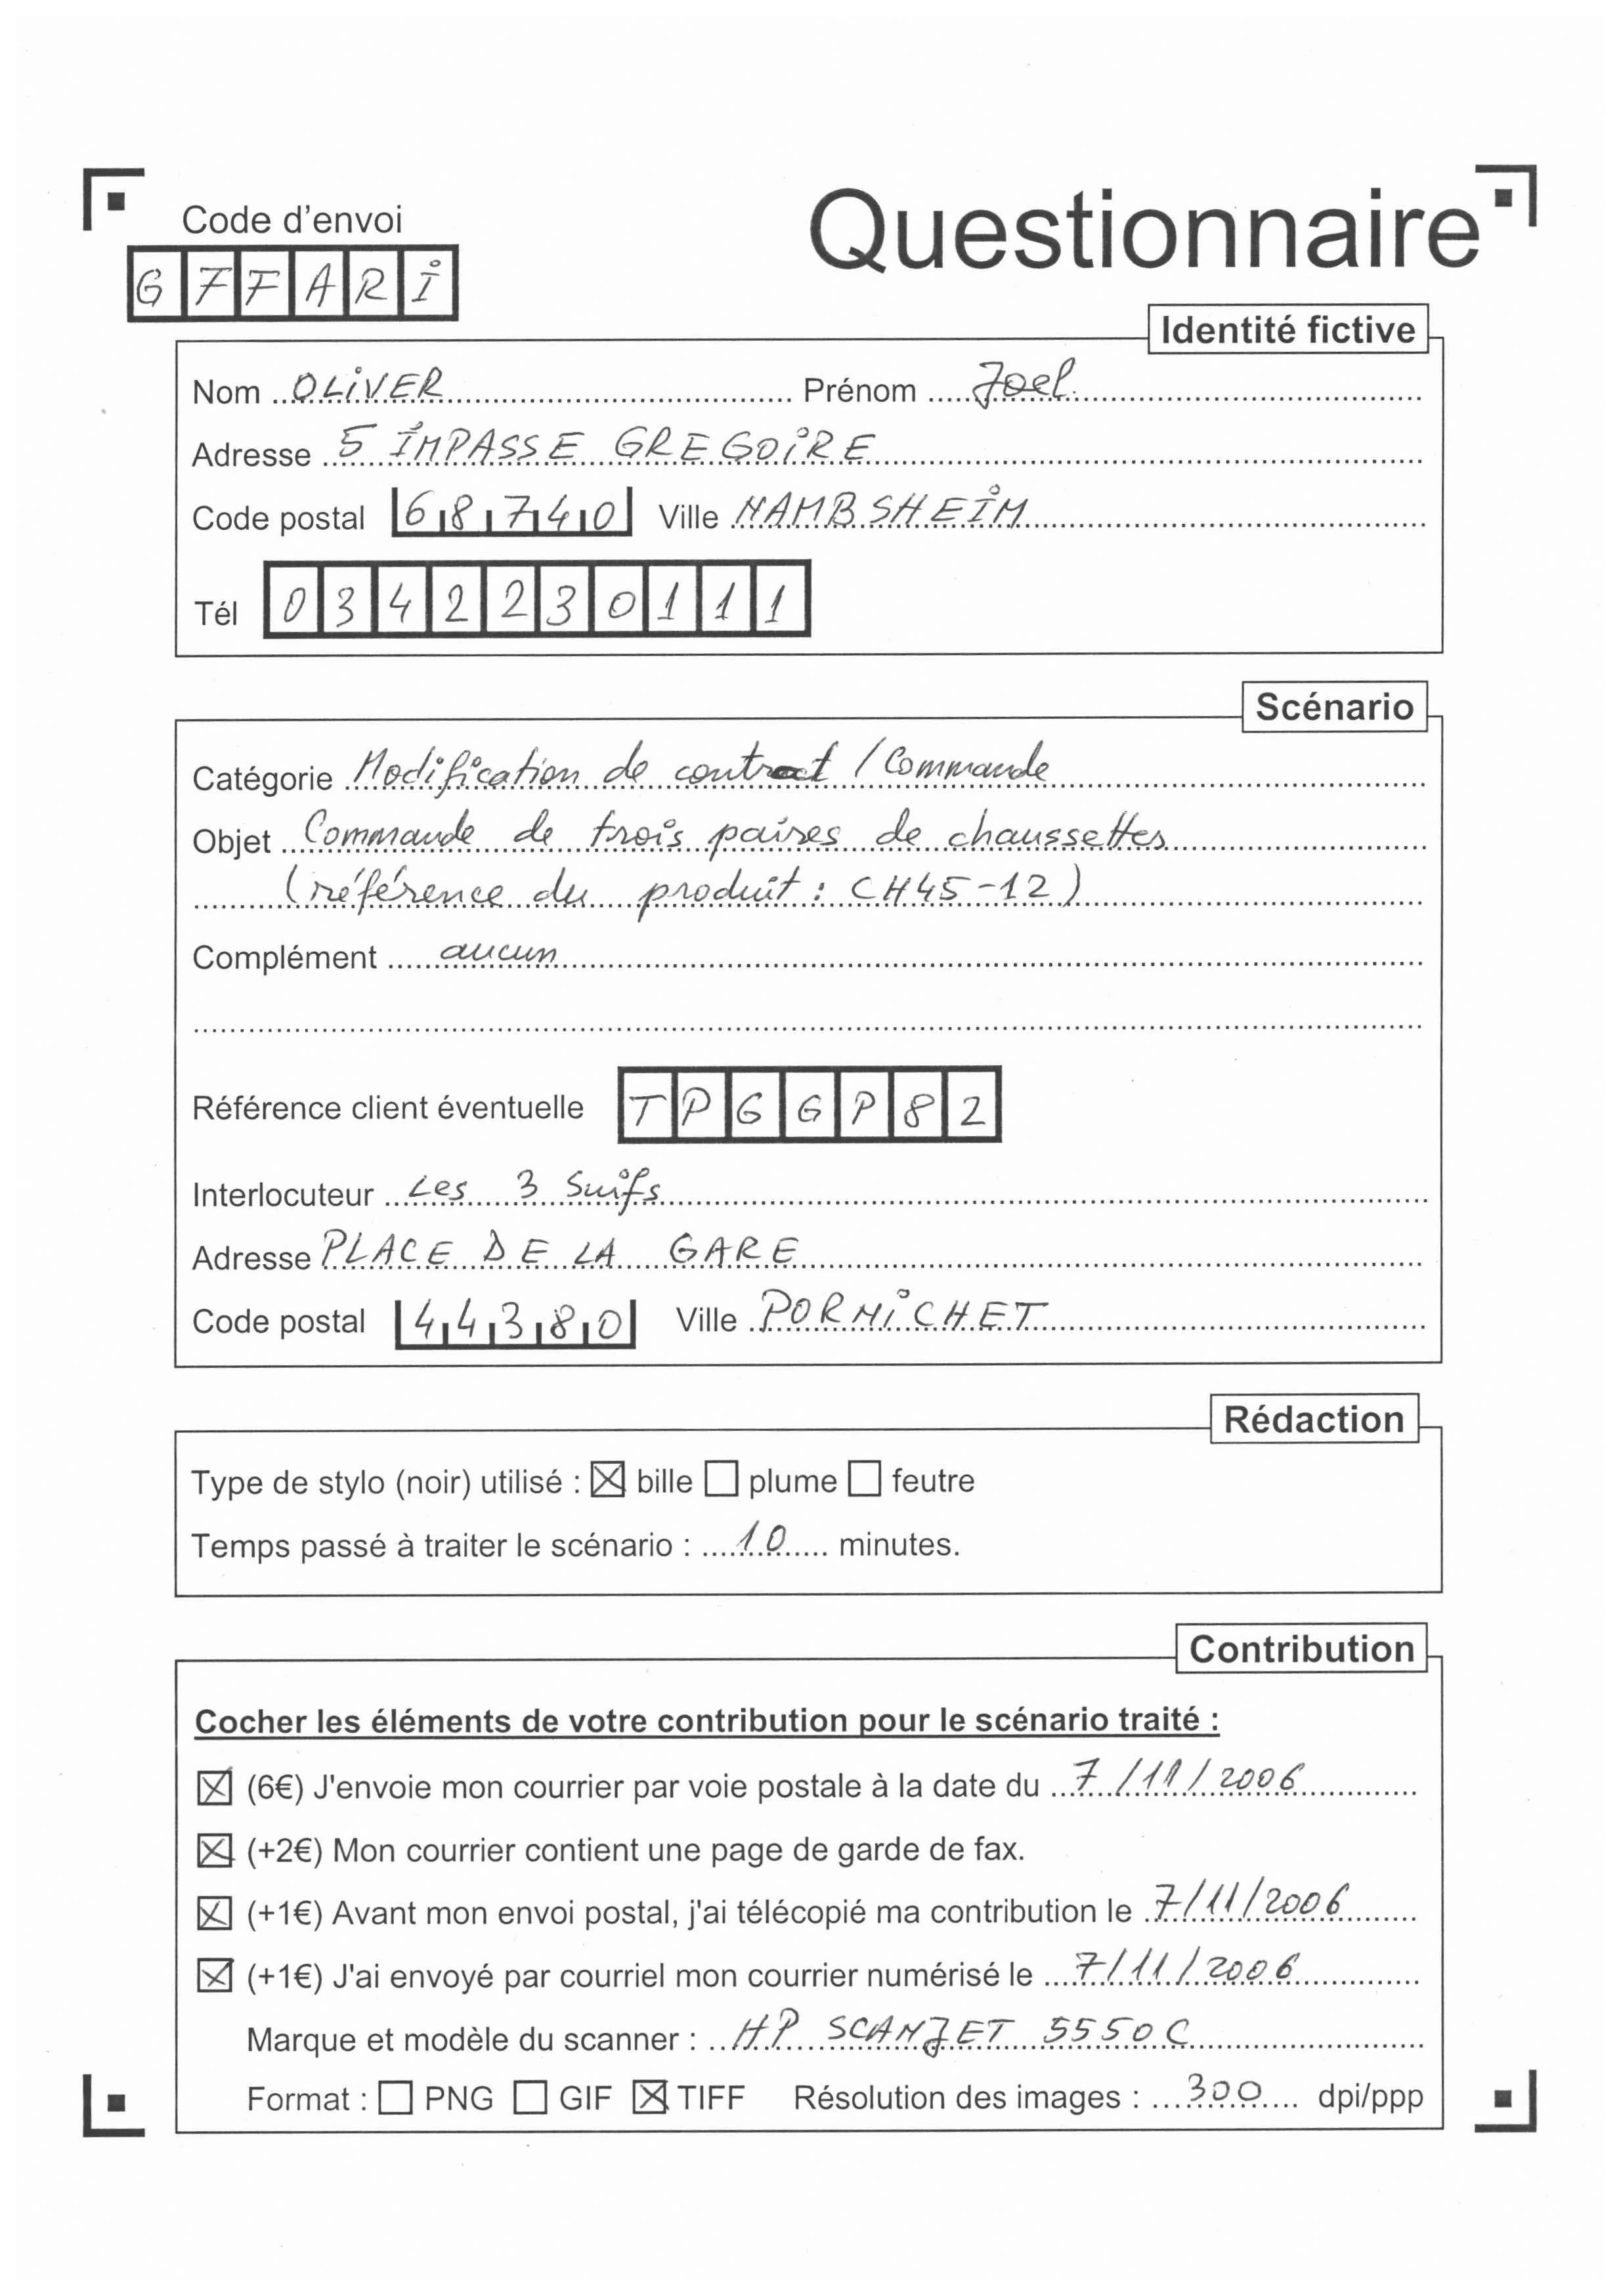 Code d'envoi
Questionnaire
G7FARI
Identité fictive
Nom OLIVER Prénom Joel
Adresse 5 IMPASSE GREGOIRE
Code postal 68740 Ville NAMBSHEIM
Tél 0342230111
Scénario
Catégorie Modification de contrat / Commande
Objet Commande de trois paires de chaussettes
(référence du produit : CH45-12)
Complément aucun
Référence client éventuelle TPGGP82
Interlocuteur Les 3 Suifs
Adresse PLACE DE LA GARE
Code postal 44380 Ville PORNICHET
Rédaction
Type de stylo (noir) utilisé : ☒ bille ☐ plume ☐ feutre
Temps passé à traiter le scénario : 10 minutes.
Contribution
Cocher les éléments de votre contribution pour le scénario traité :
☒ (6€) J'envoie mon courrier par voie postale à la date du 7/11/2006
☒ (+2€) Mon courrier contient une page de garde de fax.
☒ (+1€) Avant mon envoi postal, j'ai télécopié ma contribution le 7/11/2006
☒ (+1€) J'ai envoyé par courriel mon courrier numérisé le 7/11/2006
Marque et modèle du scanner : HP SCANJET 5550C
Format : ☐ PNG ☐ GIF ☒ TIFF Résolution des images : 300 dpi/ppp